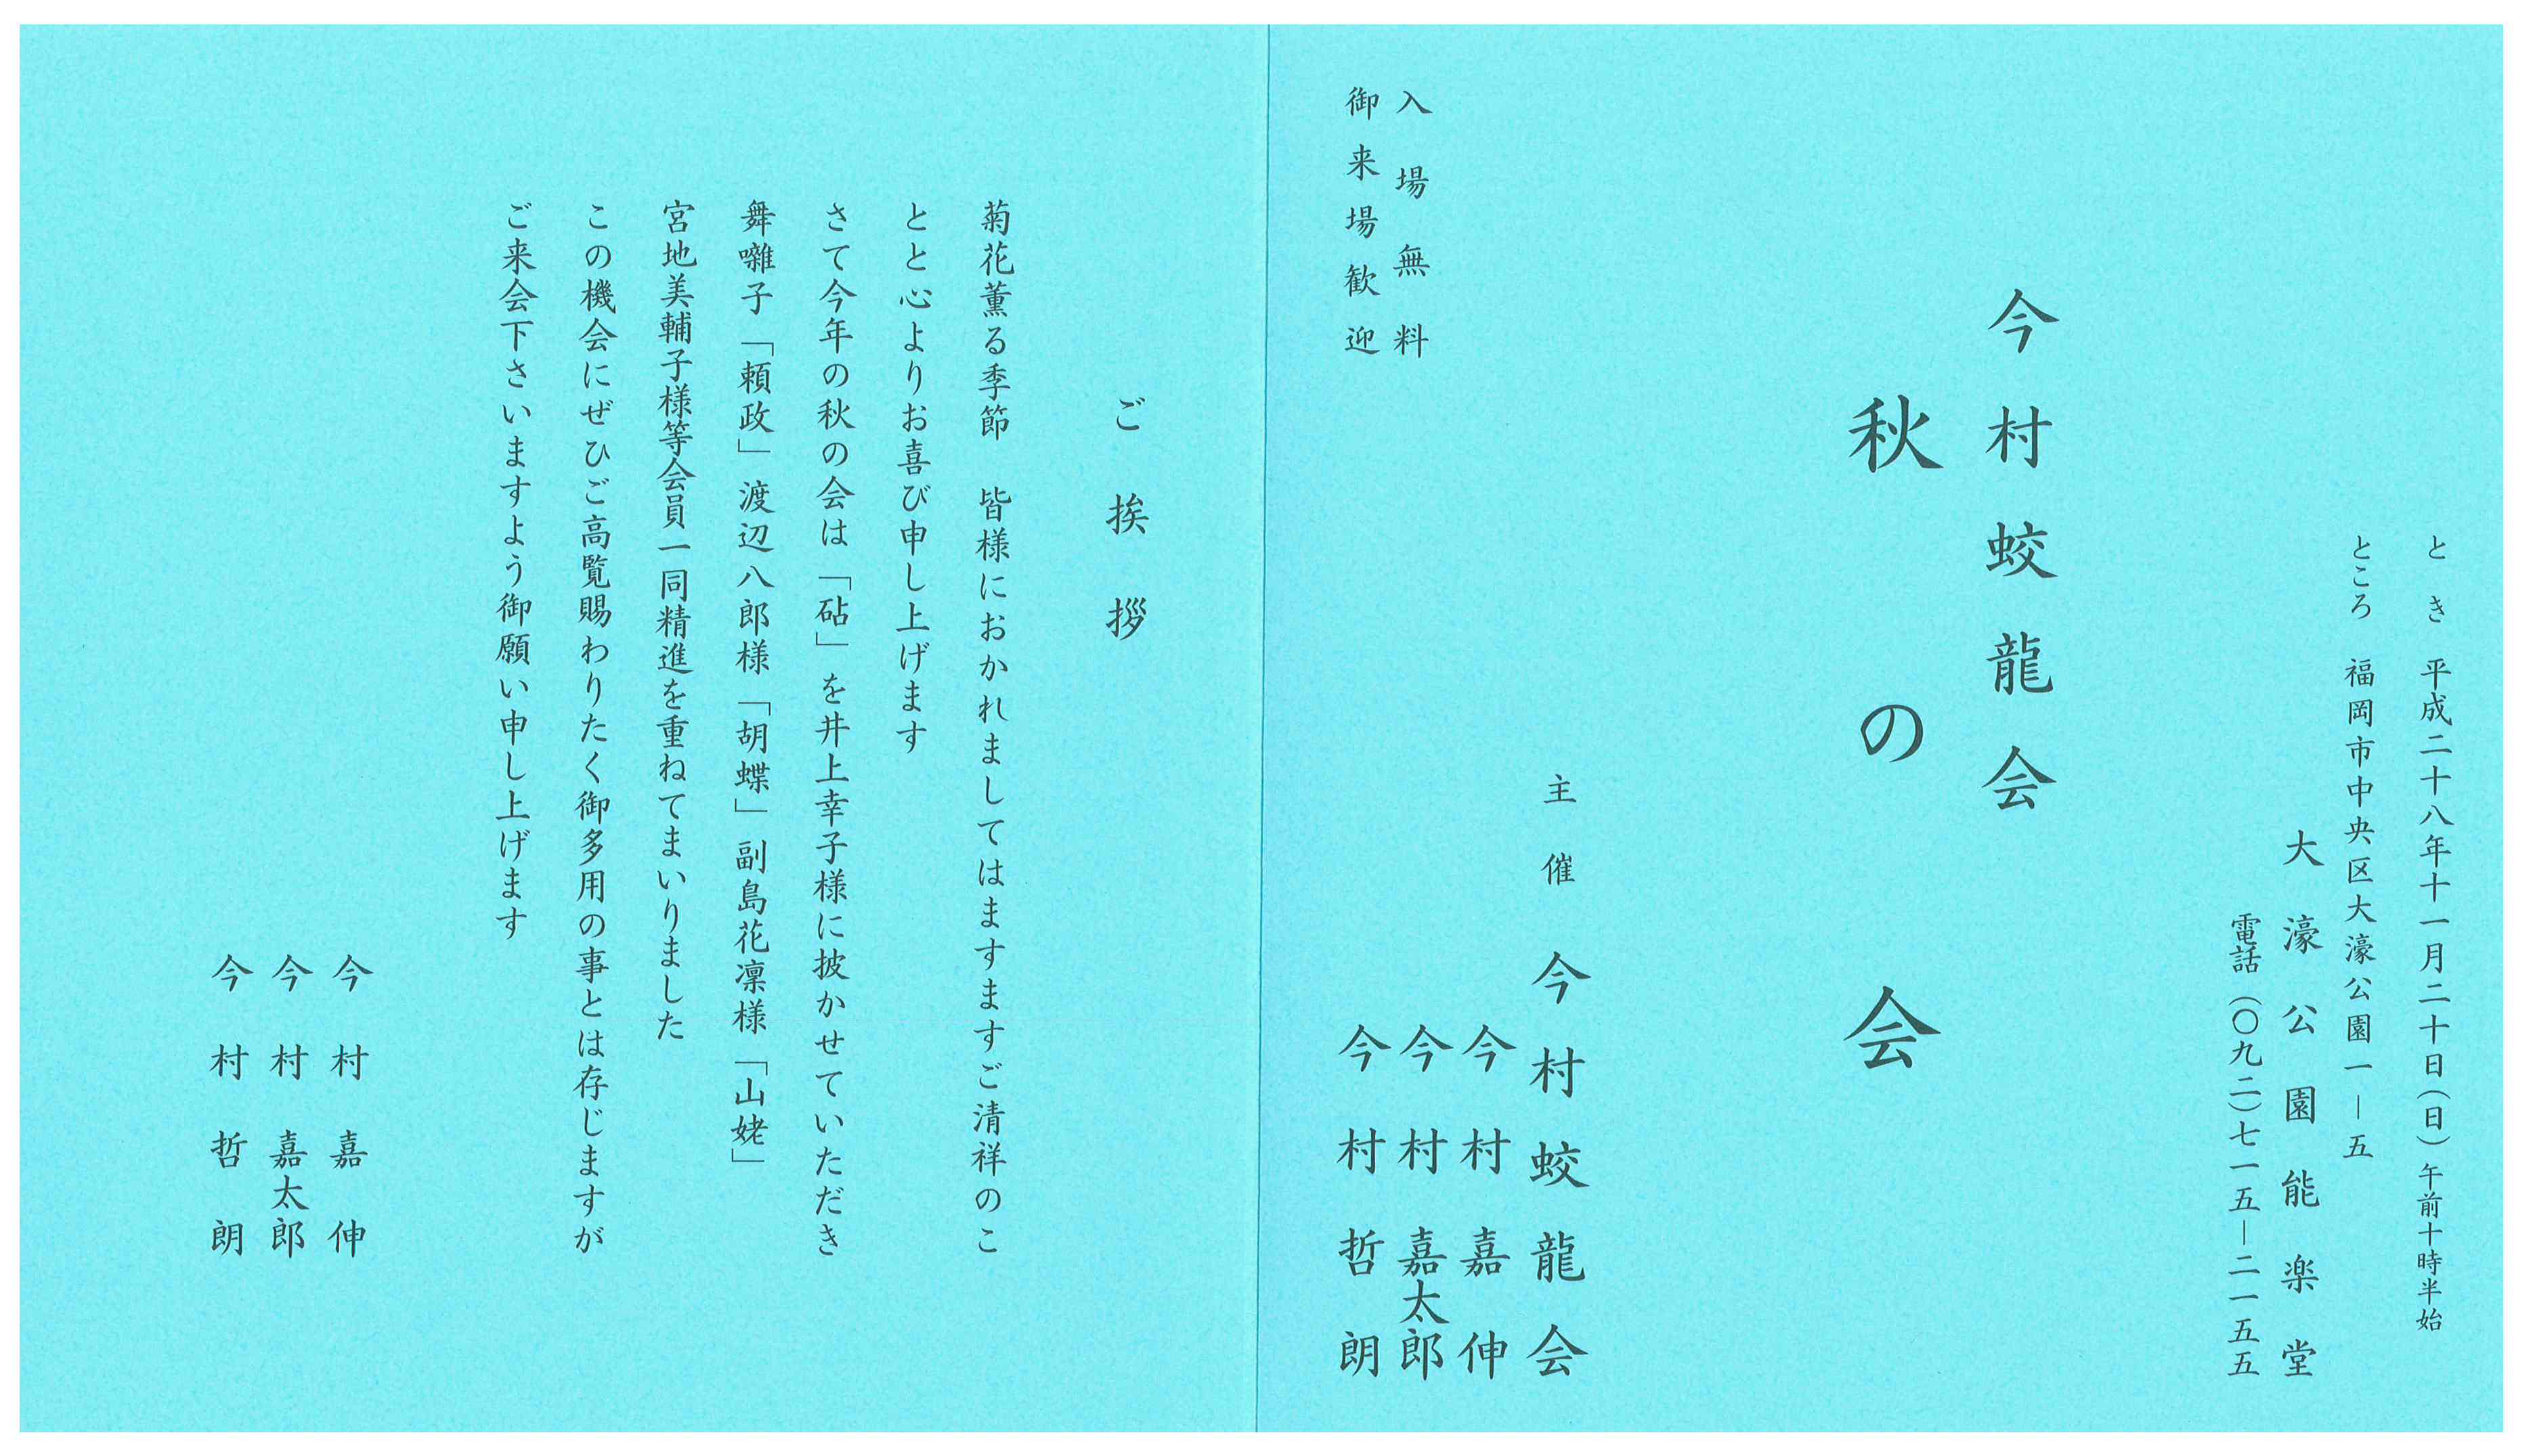 とき　平成二十八年十一月二十日(日)午前十時半始
ところ　福岡市中央区大濠公園一―五
大濠公園能楽堂
電話(〇九二)七一五―二一五五
今村蛟龍会
秋の会
主催　今村蛟龍会
今村嘉伸
今村嘉太郎
今村哲朗
入場無料
御来場歓迎
ご挨拶
菊花薫る季節　皆様におかれましてはますますご清祥のこ
とと心よりお喜び申し上げます
さて今年の秋の会は「砧」を井上幸子様に披かせていただき
舞囃子「頼政」渡辺八郎様「胡蝶」副島花凜様「山姥」
宮地美輔子様等会員一同精進を重ねてまいりました
この機会にぜひご高覧賜わりたく御多用の事とは存じますが
ご来会下さいますよう御願い申し上げます
今村嘉伸
今村嘉太郎
今村哲朗